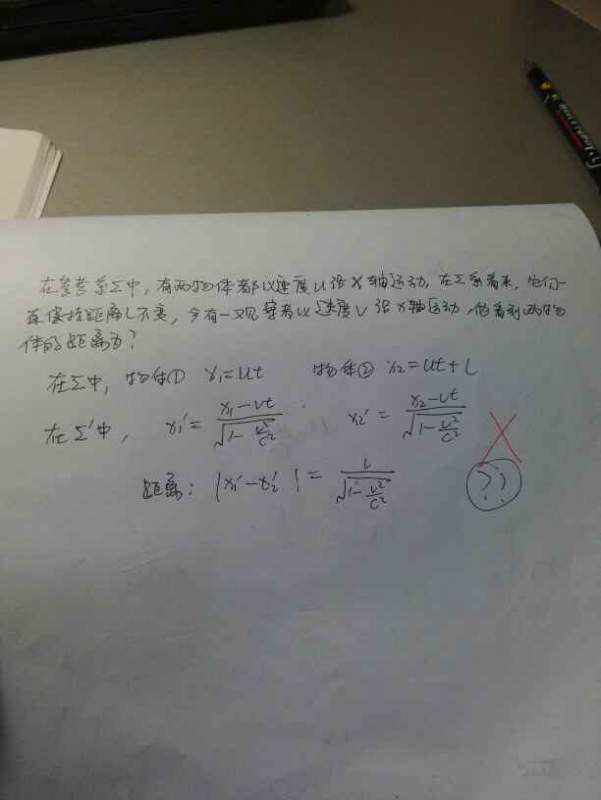 在参考系Σ中，有两物体都以速度u沿x轴运动，在Σ系看来，它们一
直保持距离L不变，今有一观察者以速度v沿x轴运动，他看到两物
体的距离为？
在Σ中，物体① x₁=ut 物体② x₂=ut+L
在Σ'中， x₁'= (x₁-vt)/√(1-v²/c²) x₂'= (x₂-vt)/√(1-v²/c²)
距离：|x₁'-x₂'|= L/√(1-v²/c²)
??